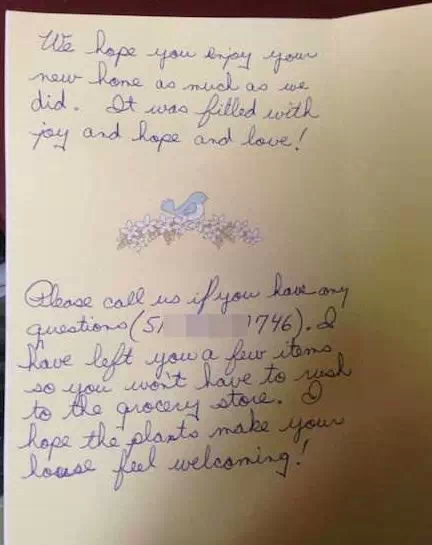 We hope you enjoy your
new home as much as we
did. It was filled with
joy and hope and love!
Please call us if you have any
questions (51 1746). I
have left you a few items
so you won't have to rush
to the grocery store. I
hope the plants make your
house feel welcoming!